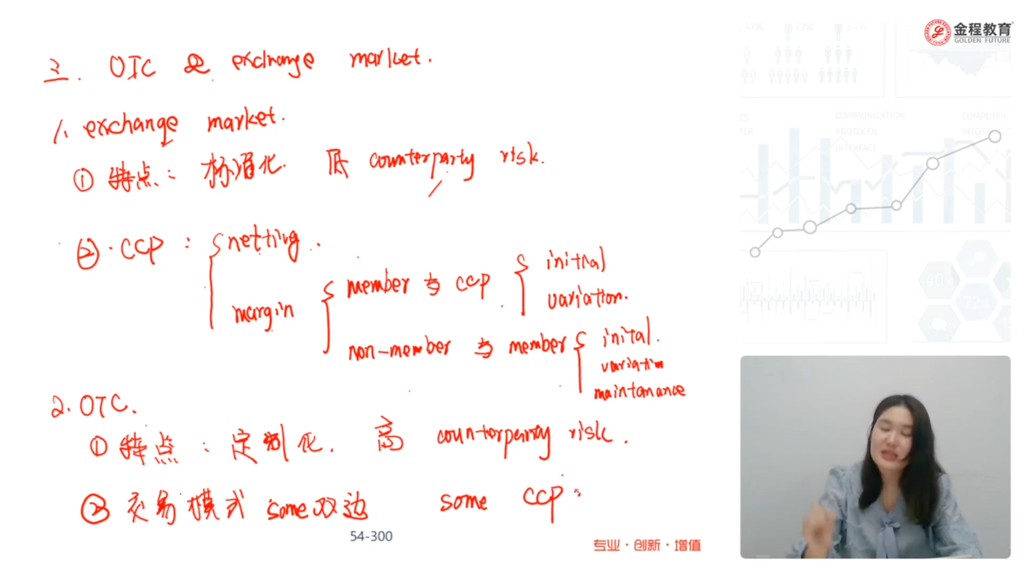 三. OTC & exchange market.
1. exchange market.
① 特点: 标准化. 低 counterparty risk.
② · CCP : netting.
margin
member 与 CCP
initial
variation.
non-member 与 member
inital.
variation
maintanance
2. OTC.
① 特点: 定制化. 高 counterparty risk.
② 交易模式 some双边 some CCP
54-300
专业·创新·增值
金程教育
GOLDEN FUTURE
COMMUNICATION
PROTOCOL
INTERFACE